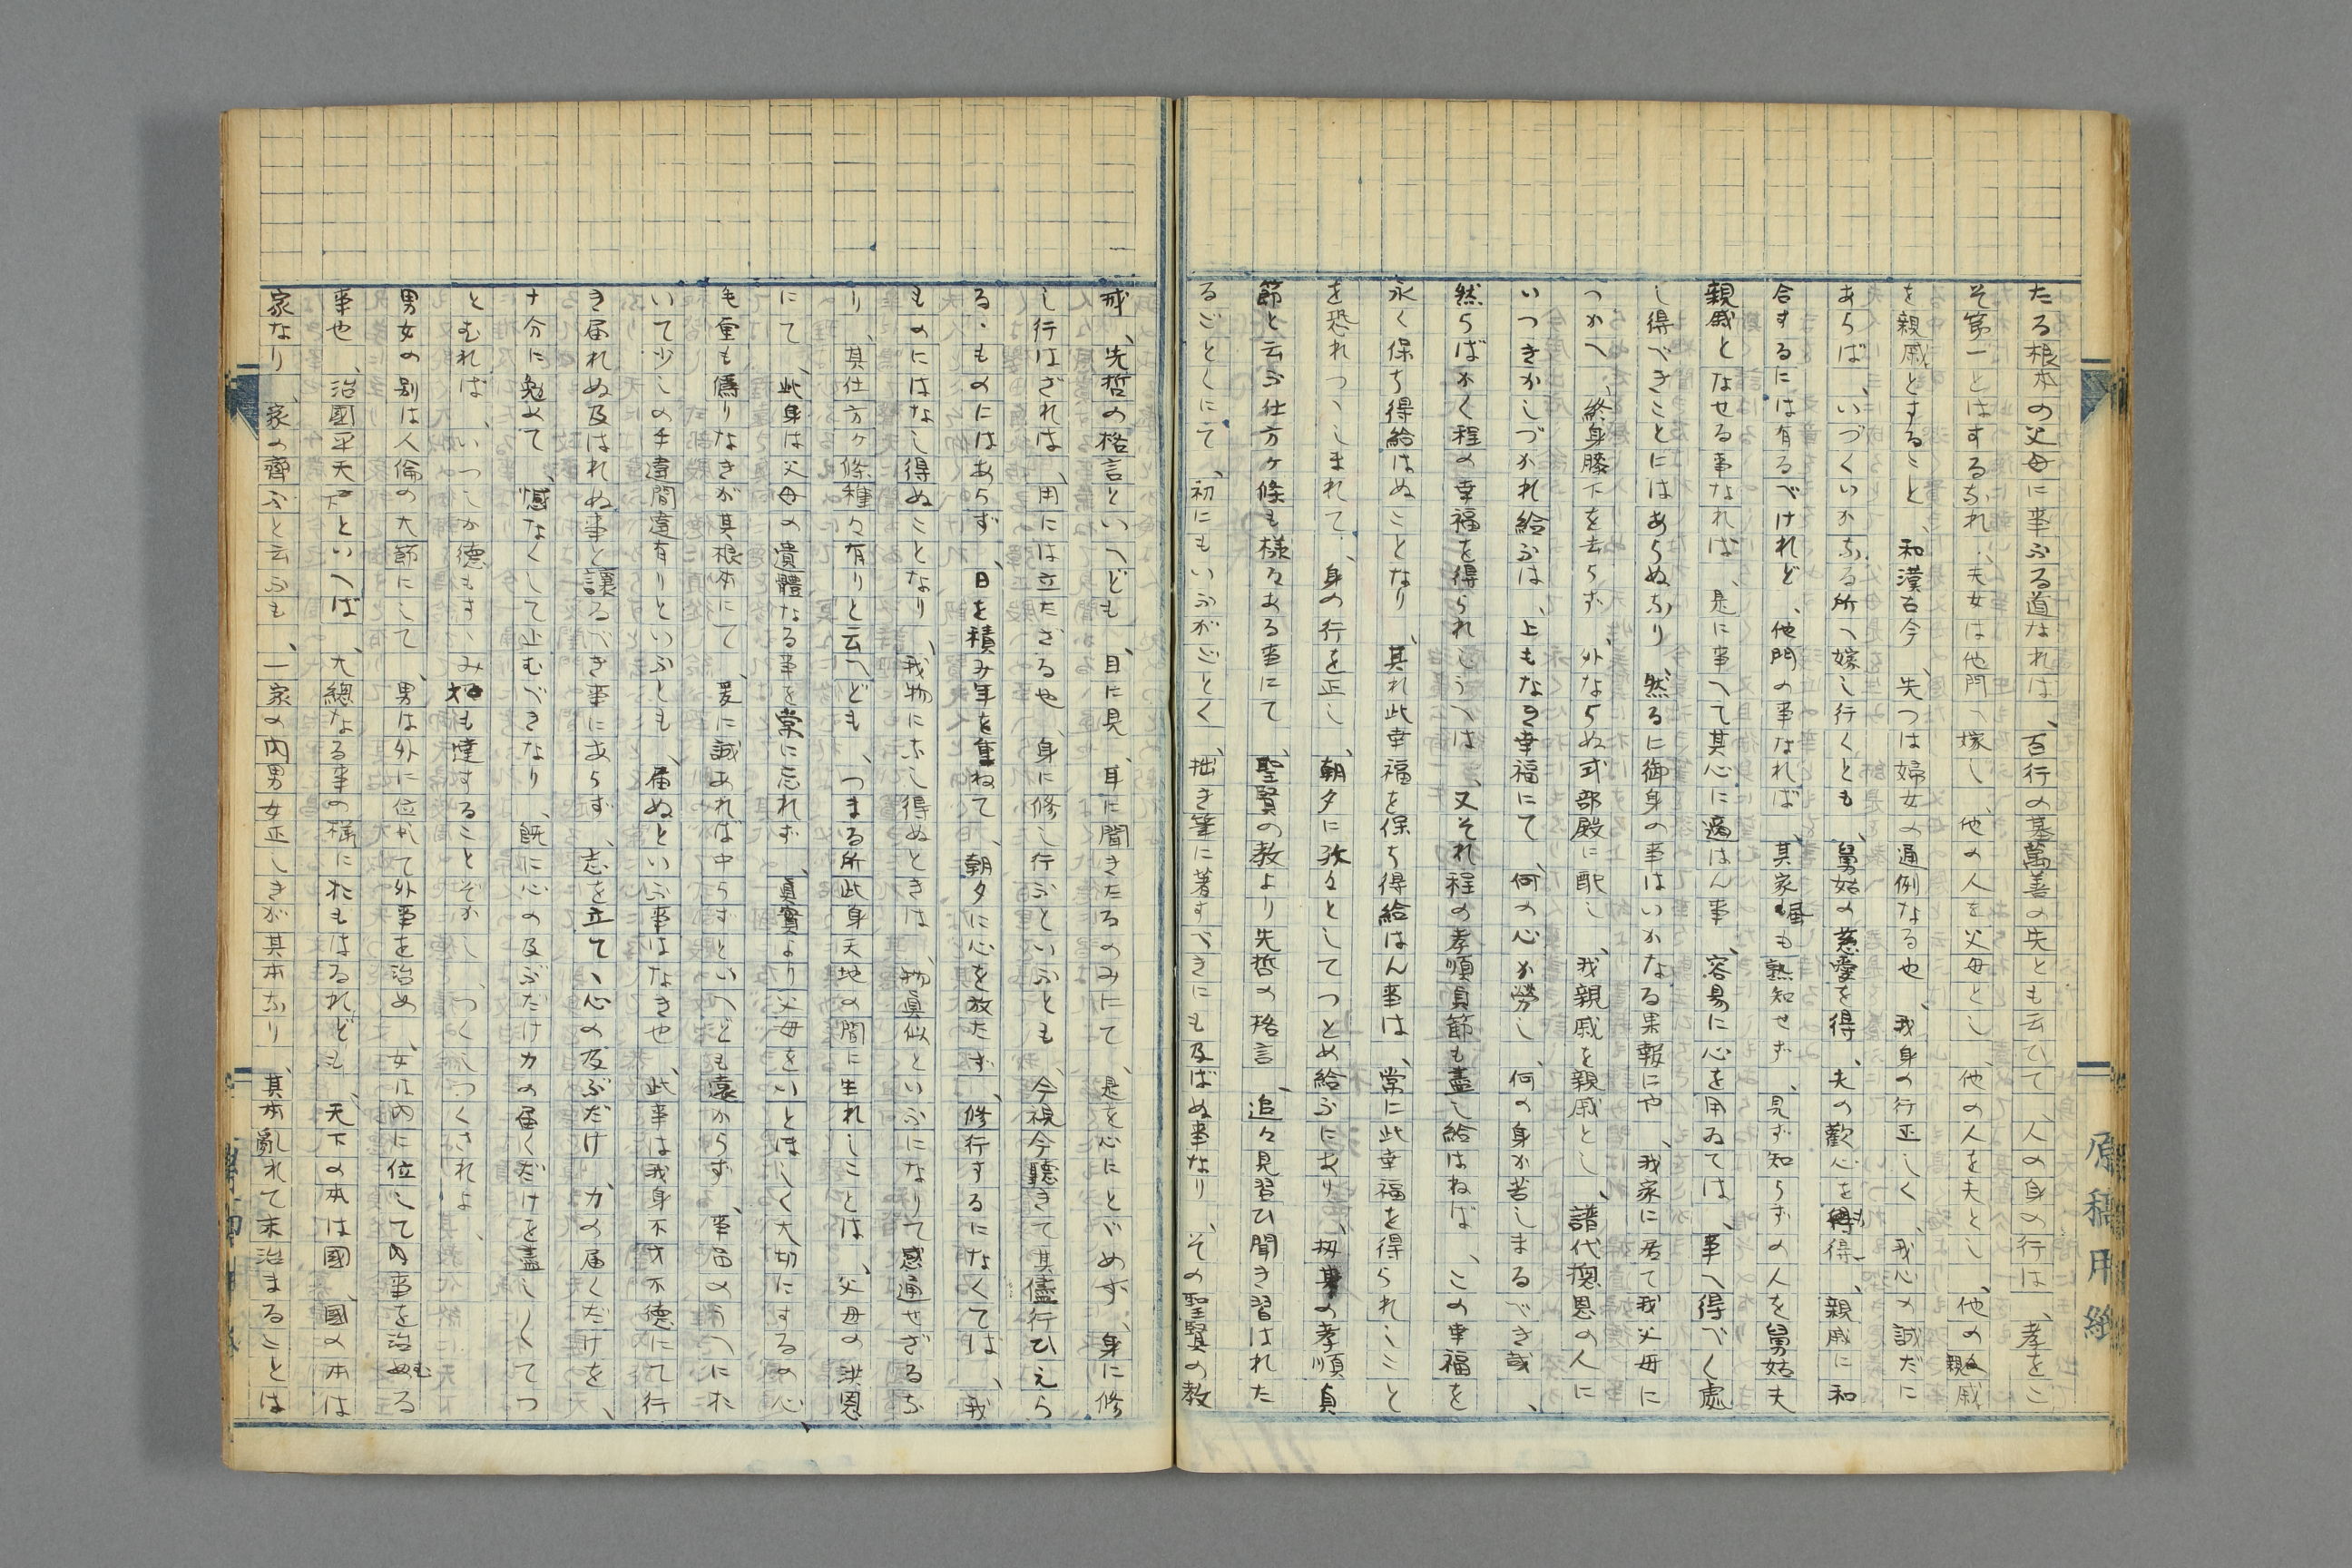 たる根本の父母に事ふる道なれは、百行の基萬善の先とも云ひて、人の身の行は、孝をこ
そ第一とはするなれ、夫女は他門へ嫁し、他の人を父母とし、他の人を夫とし、他の親戚
を親戚とすること、和漢古今、先つは婦女の通例なる也、我身の行正しく、我心の誠だに
あらば、いづくいかなる所へ嫁し行くとも、舅姑の慈愛を得、夫の歡心を得、親戚に和
合するには有るべけれど、他門の事なれば、其家風も熟知せず、見ず知らずの人を舅姑夫
親戚となせる事なれば、是に事へて其心に適はん事、容易に心を用ゐては、事へ得べく處
し得べきことにはあらぬなり、然るに御身の事はいかなる果報にや、我家に居て我父母に
つかへ、終身膝下を去らず、外ならぬ式部殿に配し、我親戚を親戚とし、譜代揔恩の人に
いつきかしづかれ給ふは、上もなき幸福にて、何の心か勞し、何の身か苦しまるべき哉、
然らばかく程の幸福を得られしうへは、又それ程の孝順貞節も盡し給はねば、この幸福を
永く保ち得給はぬことなり、其れ此幸福を保ち得給はん事は、常に此幸福を得られしこと
を恐れつゝしまれて、身の行を正し、朝夕に孜々としてつとめ給ふにあり、扨其の孝順貞
節と云ふ仕方ヶ條も様々ある事にて、聖賢の教より先哲の格言、追々見習ひ聞き習はれた
るごとくにて、初にもいふがごとく、拙き筆に著すべきにも及ばぬ事なり、その聖賢の教
戒、先哲の格言といへども、目に見、耳に聞きたるのみにて、是を心にとゞめず、身に修
し行はざれは、用には立たざる也、身に修し行ふといふとも、今視今聽きて其儘行ひえら
るゝものにはあらず、日を積み年を重ねて、朝夕に心を放たず、修行するになくては、我
ものにはなし得ぬことなり、我物になし得ぬときは、物眞似といふになりて感通せざるな
り、其仕方ヶ條種々有りと云へども、つまる所此身天地の間に生れしことは、父母の洪恩
にて、此身は父母の遺體なる事を常に忘れず、眞實より父母をいとほしく大切にするの心、
毛重も僞りなきが其根本にて、爰に誠あれば中らすといへども遠からず、事品のうへにお
いて少しの手違間違有りといふとも、届ぬといふ事はなき也、此事は我身不才不德にて行
き届れぬ及はれぬ事と讓るべき事にあらず、志を立てゝ心の及ぶだけ、力の届くだけを、
十分に勉めて、憾なくして止むべきなり、既に心の及ぶだけ力の届くだけを盡し〳〵てつ
とむれば、いつしか德もすゝみ才も達することぞかし、つくしつくされよ、
男女の別は人倫の大節にして、男は外に位して外事を治め、女は内に位して内事を治むる
事也、治國平天下といへば、大總なる事の様におもはるれども、天下の本は國、國の本は
家なり、家の齊ふと云ふも、一家の内男女正しきが其本なり、其本亂れて末治まることは
原稿用紙